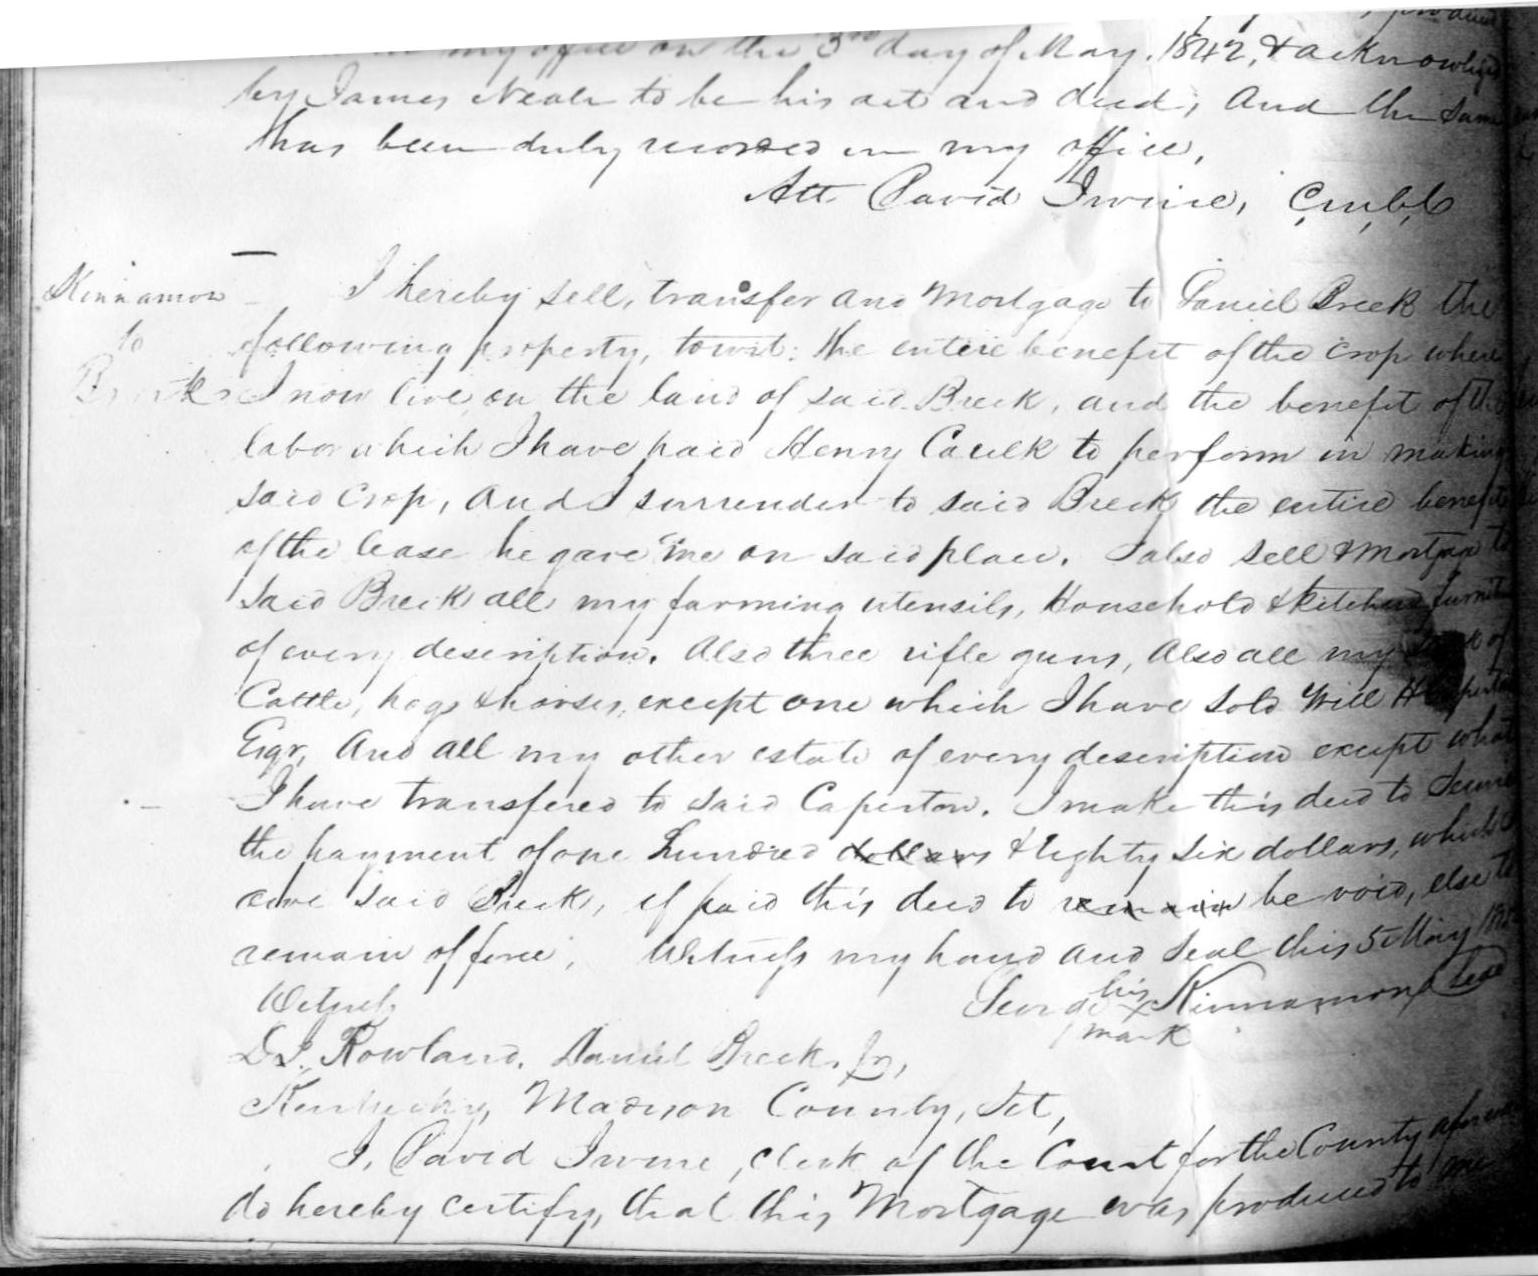 produced
my office on the 3rd day of May, 1842, & acknowledged
by James Neale to be his act and deed, And the same
has been duly recorded in my office,
Att. David Irvine, C,m,C,C
Kinnamon
to
Breck
I hereby sell, transfer and Mortgage to Daniel Breck the
following property, towit: the entire benefit of the crop where
I now live on the land of said Breck, and the benefit of the
labor which I have paid Henry Caulk to perform in making
said crop, And I surrender to said Breck the entire benefit
of the lease he gave me on said place. I also sell & mortgage to
said Breck all my farming utensils, Household & kitchen furniture
of every description. Also three rifle guns, Also all my of
Cattle, hogs & horses, except one which I have sold Will H Caperton
Esqr, And all my other estate of every description except what
I have transfered to said Caperton. I make this deed to secure
the payment of one hundred dollars & Eighty six dollars, which I
owe said Breck, if paid this deed to remain be void, else to
remain of force; Witness my hand and seal this 5 May 1842
Witness
George his Kinnamon seal
mark
D. I. Rowland. Daniel Breck. Jr,
Kentucky, Madison County, Sct,
I, David Irvine, clerk of the Court for the County aforesaid
do hereby certify, that this Mortgage was produced to me